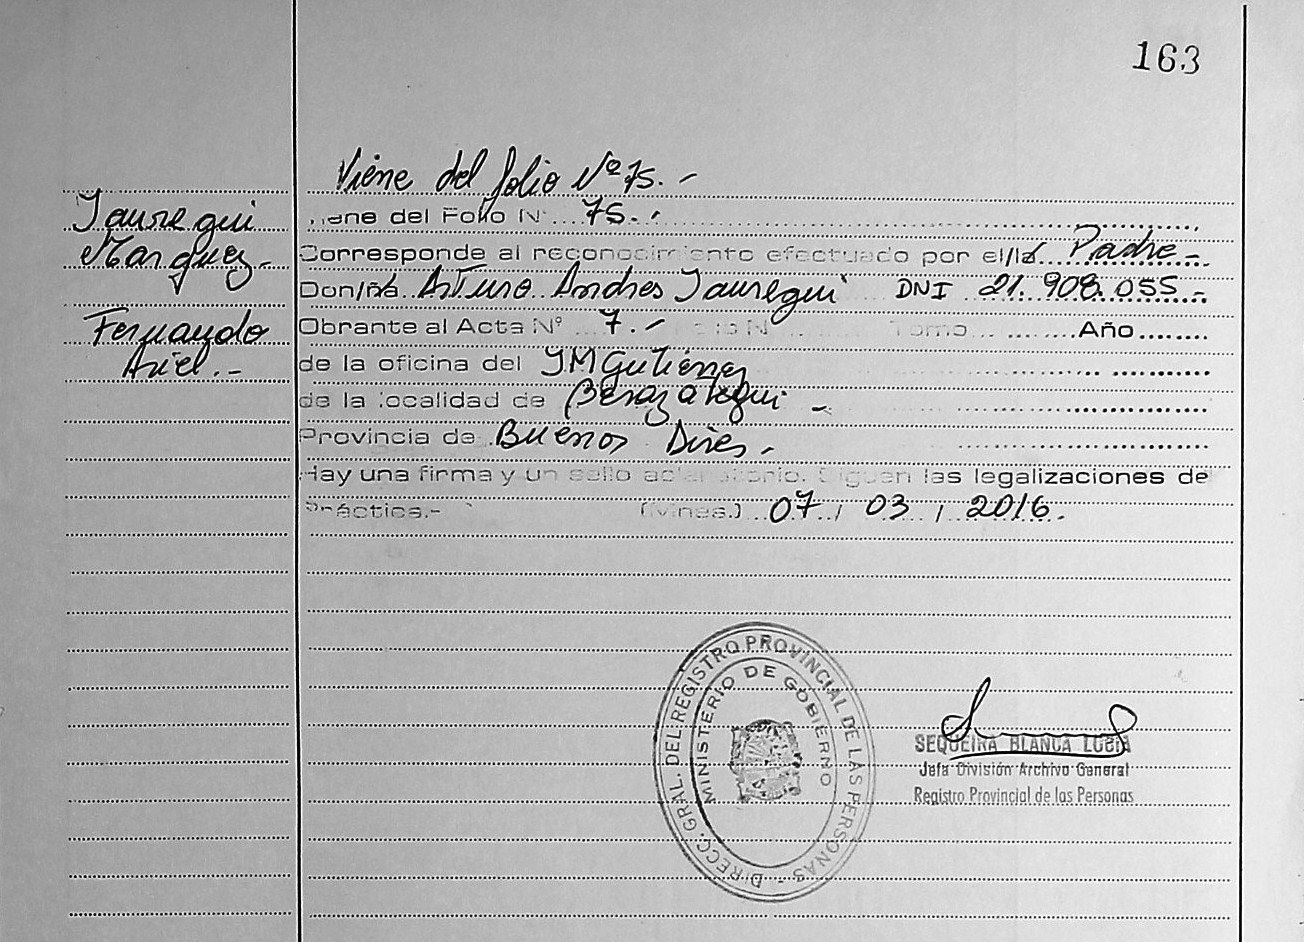 163
Viene del folio Nº 75.-
Jauregui
Marquez.-
Fernando
Ariel.-
Viene del Folio Nº 75.-
Corresponde al reconocimiento efectuado por el/la Padre.-
Don/ña Arturo Andres Jauregui DNI 21.908.055.-
Obrante al Acta Nº 7.- Folio Nº Tomo Año
de la oficina del J M Gutierrez
de la localidad de Berazategui -
Provincia de Buenos Aires.-
Hay una firma y un sello aclaratorio. Siguen las legalizaciones de
Práctica.- 07 / 03 / 2016.
DIRECC. GRAL. DEL REGISTRO PROVINCIAL DE LAS PERSONAS
MINISTERIO DE GOBIERNO
SEQUEIRA BLANCA
Jefa División Archivo General
Registro Provincial de las Personas